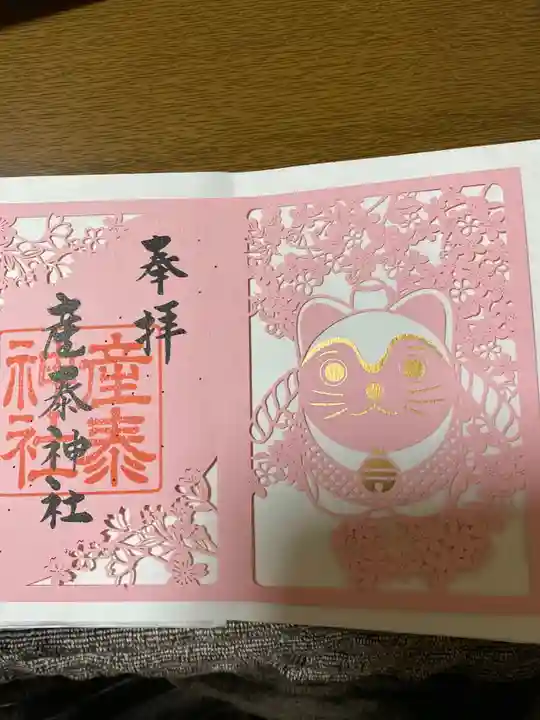 奉拝
産泰神社
産泰
神社